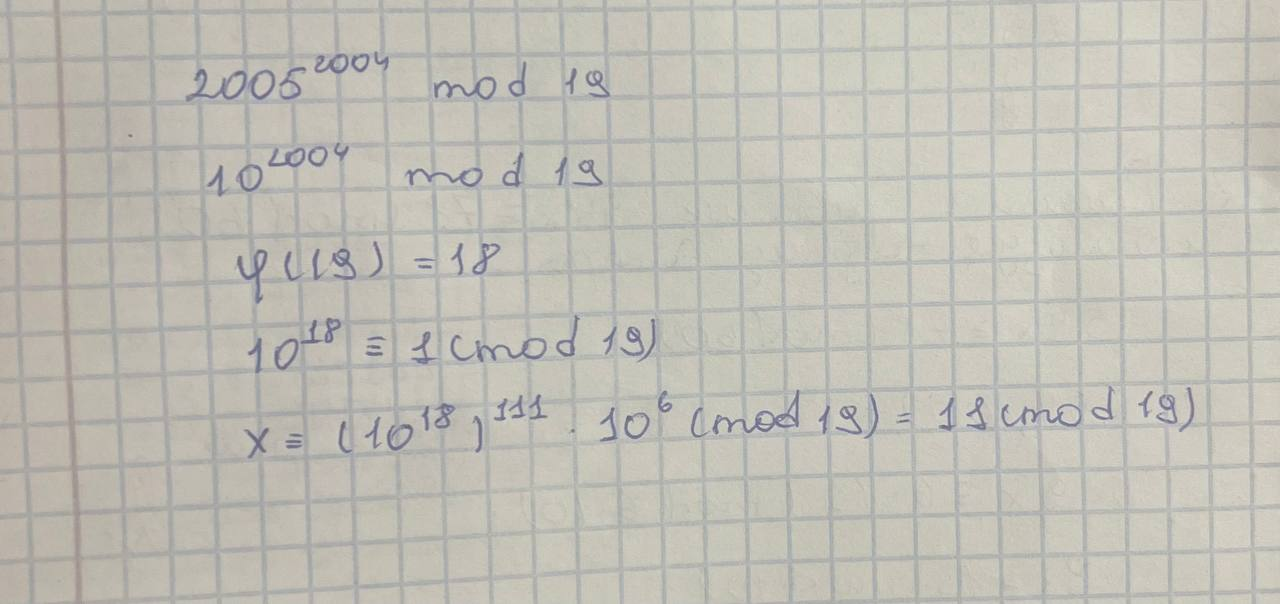 2005^2004 mod 19
10^2004 mod 19
φ(19) = 18
10^18 ≡ 1 (mod 19)
x ≡ (10^18)^111 · 10^6 (mod 19) = 11 (mod 19)